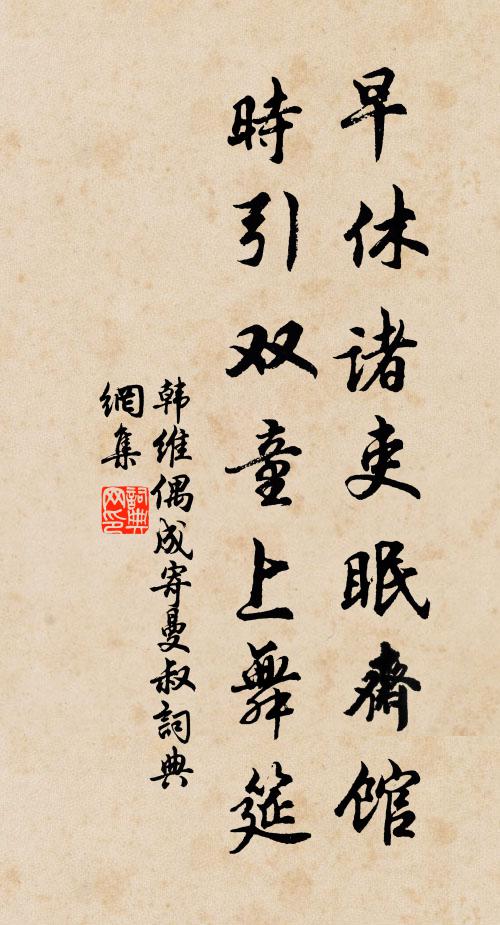 早休诸吏眠齋馆
時引双童上舞筵
韩维偶成寄曼叔詞典
網集
詞典網印